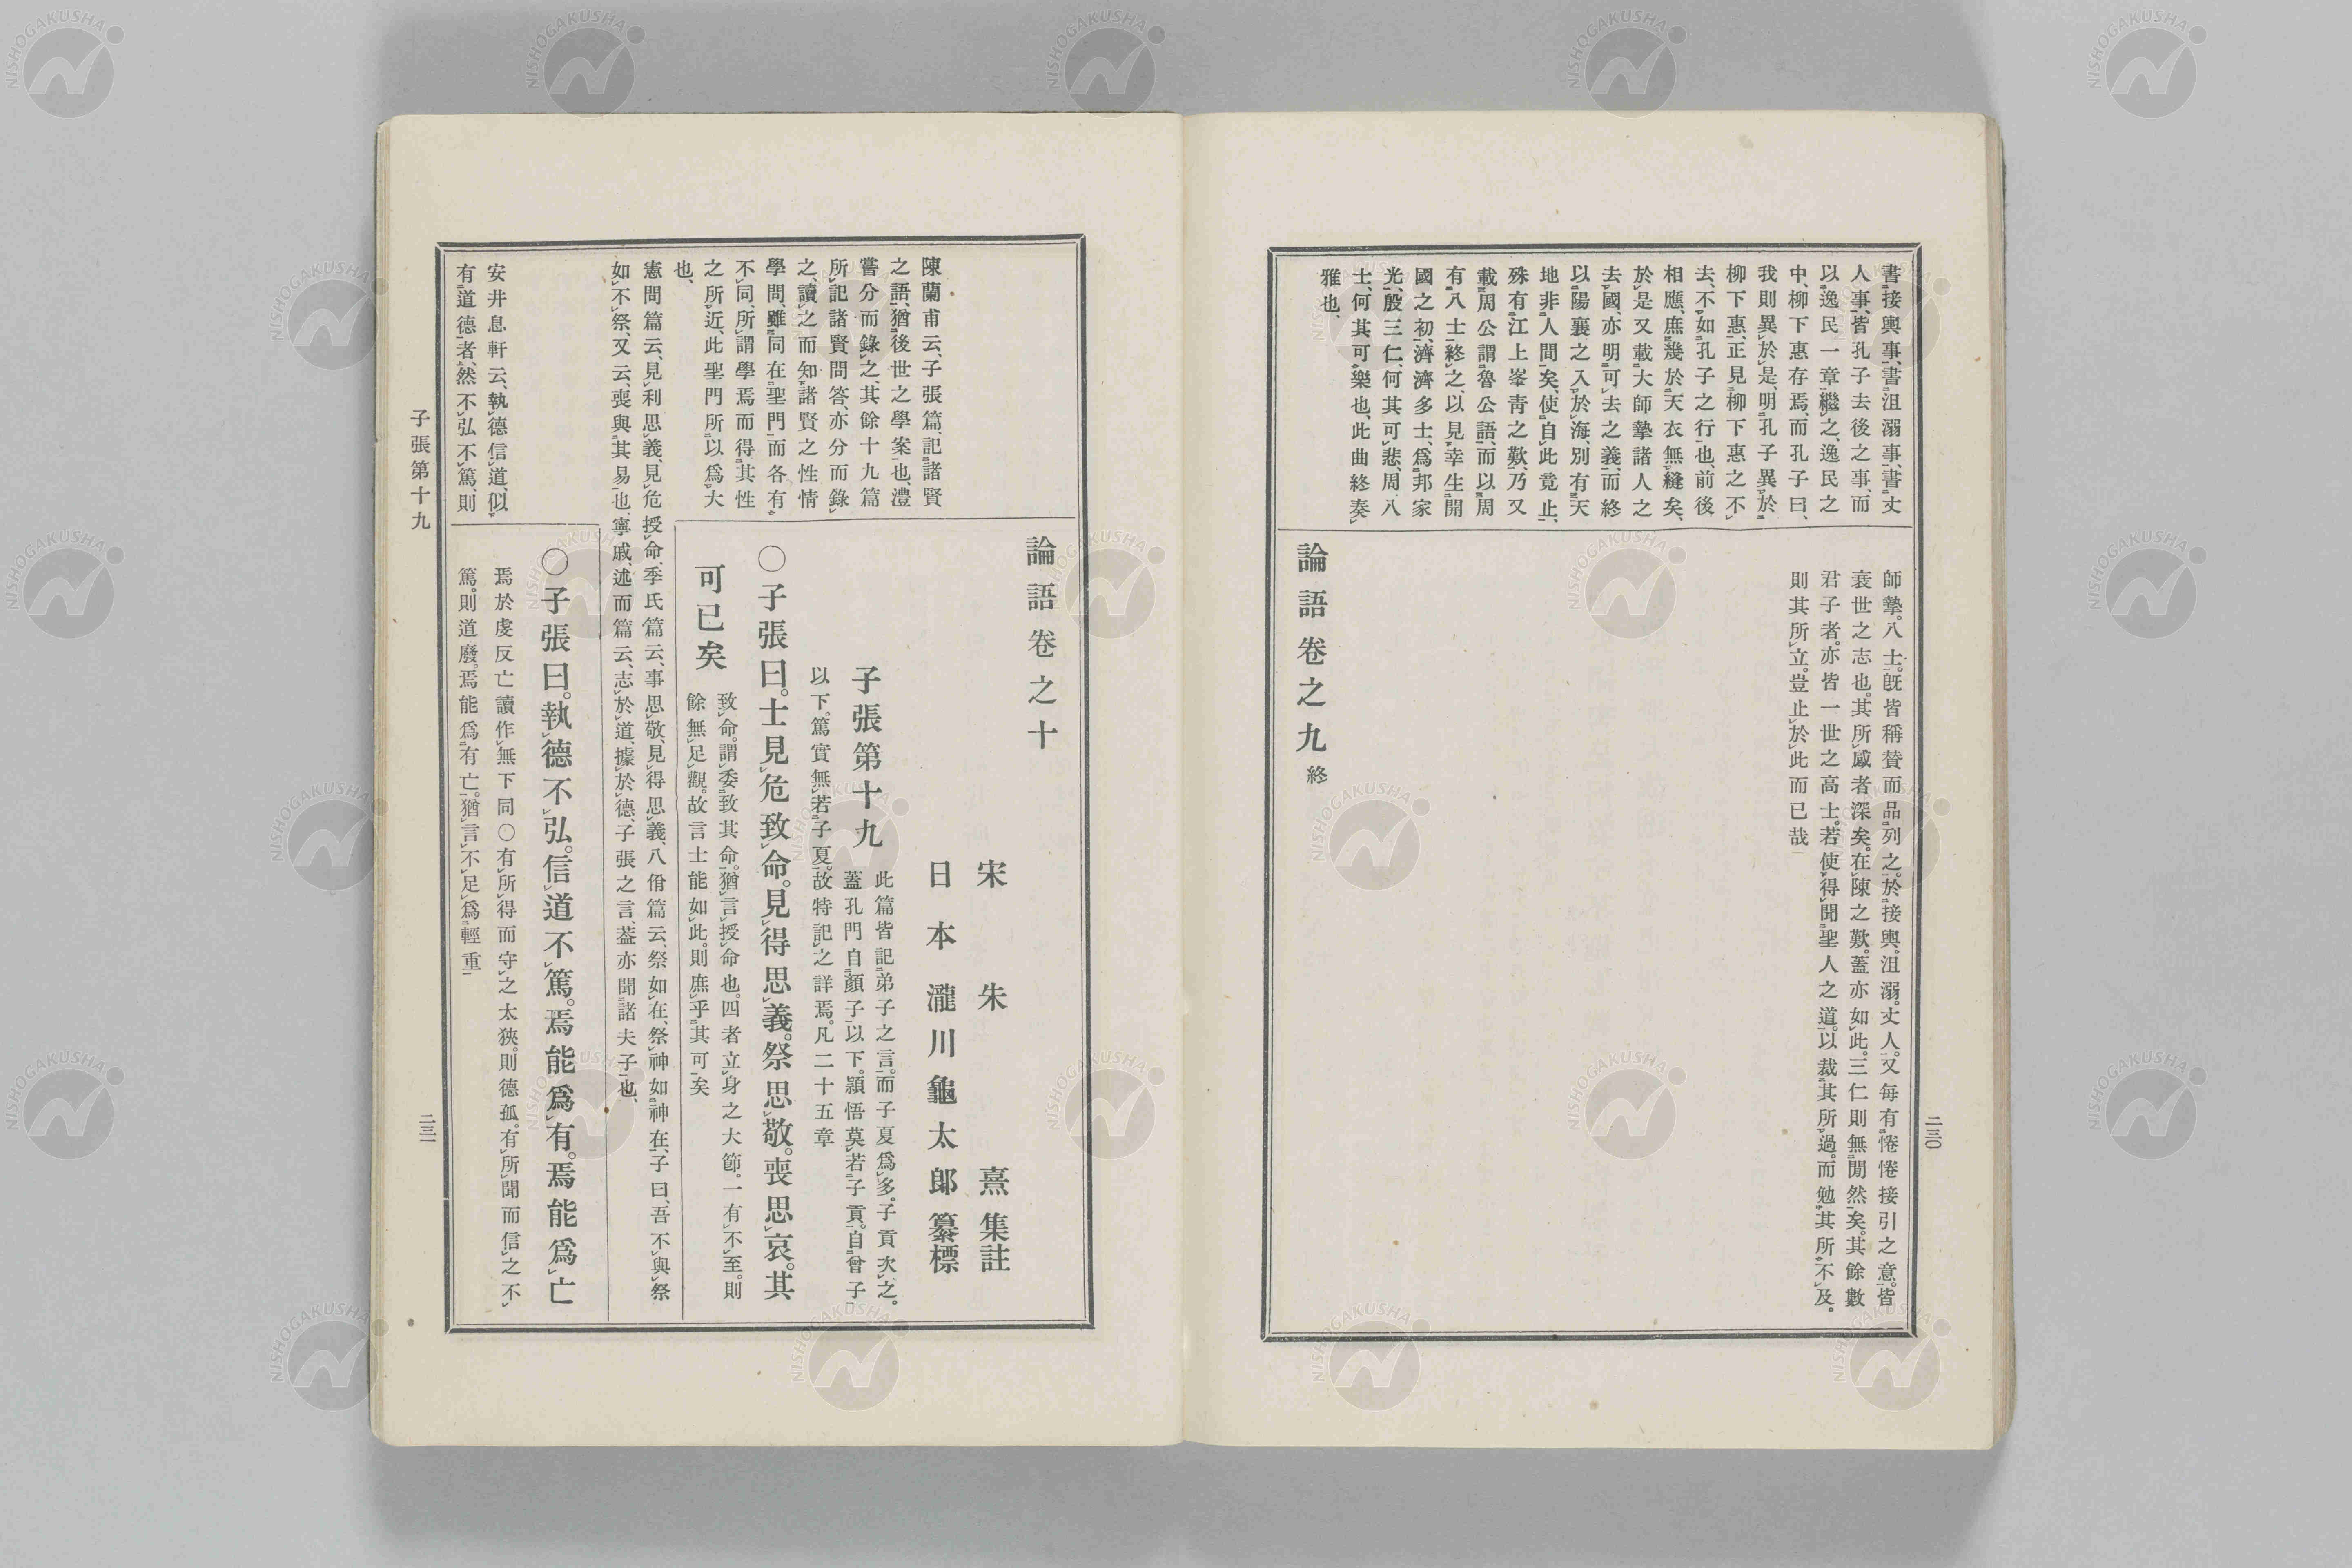 書接輿事、書沮溺事、書丈
人事、皆孔子去後之事、而
以逸民一章繼之、逸民之
中、柳下惠存焉、而孔子曰、
我則異於是、明孔子異於
柳下惠、正見柳下惠之不
去、不如孔子之行也、前後
相應、庶幾於天衣無縫矣、
於是又載大師摯諸人之
去國、亦明可去之義、而終
以陽襄之入於海、別有天
地非人間矣、使自此竟止、
殊有江上峯靑之歎、乃又
載周公謂魯公語、而以周
有八士終之、以見幸生開
國之初、濟濟多士、爲邦家
光、殷三仁、何其可悲、周八
士、何其可樂也、此曲終奏
雅也、
師摯。八士。既皆稱贊而品列之。於接輿。沮溺。丈人。又每有惓惓接引之意。皆
衰世之志也。其所感者深矣。在陳之歎。蓋亦如此。三仁則無間然矣。其餘數
君子者。亦皆一世之高士。若使得聞聖人之道。以裁其所過。而勉其所不及。
則其所立。豈止於此而已哉
論語卷之九 終
二三〇
論語卷之十
宋 朱 熹 集註
日本 瀧川龜太郞 纂標
子張第十九
此篇皆記弟子之言。而子夏爲多。子貢次之。
蓋孔門自顏子以下。穎悟莫若子貢。自曾子
以下。篤實無若子夏。故特記之詳焉。凡二十五章
陳蘭甫云、子張篇、記諸賢
之語、猶後世之學案也、澧
嘗分而錄之、其餘十九篇
所記諸賢問答、亦分而錄
之、讀之而知諸賢之性情
學問、雖同在聖門、而各有
不同、所謂學焉而得其性
之所近、此聖門所以爲大
也、
〇子張曰。士見危致命。見得思義。祭思敬。喪思哀。其
可已矣
致命。謂委致其命。猶言授命也。四者立身之大節。一有不至。則
餘無足觀。故言士能如此。則庶乎其可矣
憲問篇云、見利思義、見危授命、季氏篇云、事思敬、見得思義、八佾篇云、祭如在、祭神如神在、子曰、吾不與祭
如不祭、又云、喪與其易也寧戚、述而篇云、志於道、據於德、子張之言、蓋亦聞諸夫子也、
〇子張曰。執德不弘。信道不篤。焉能爲有。焉能爲亡
焉於虔反亡讀作無下同〇有所得而守之太狹。則德孤。有所聞而信之不
篤。則道廢。焉能爲有亡。猶言不足爲輕重
安井息軒云、執德信道、似
有道德者、然不弘不篤、則
子張第十九
二三一
NISHOGAKUSHA